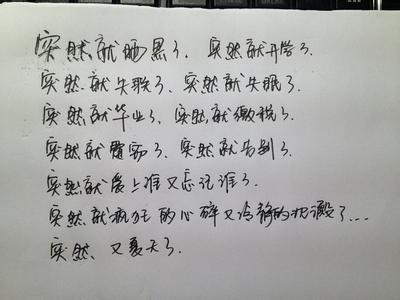 突然就晒黑了、突然就开学了、
突然就失联了、突然就失眠了、
突然就毕业了、突然就缴税了、
突然就震动了、突然就告别了、
突然就爱上谁又忘记谁了、
突然就疯狂的心碎又冷静的沉淀了...
突然、又夏天了、